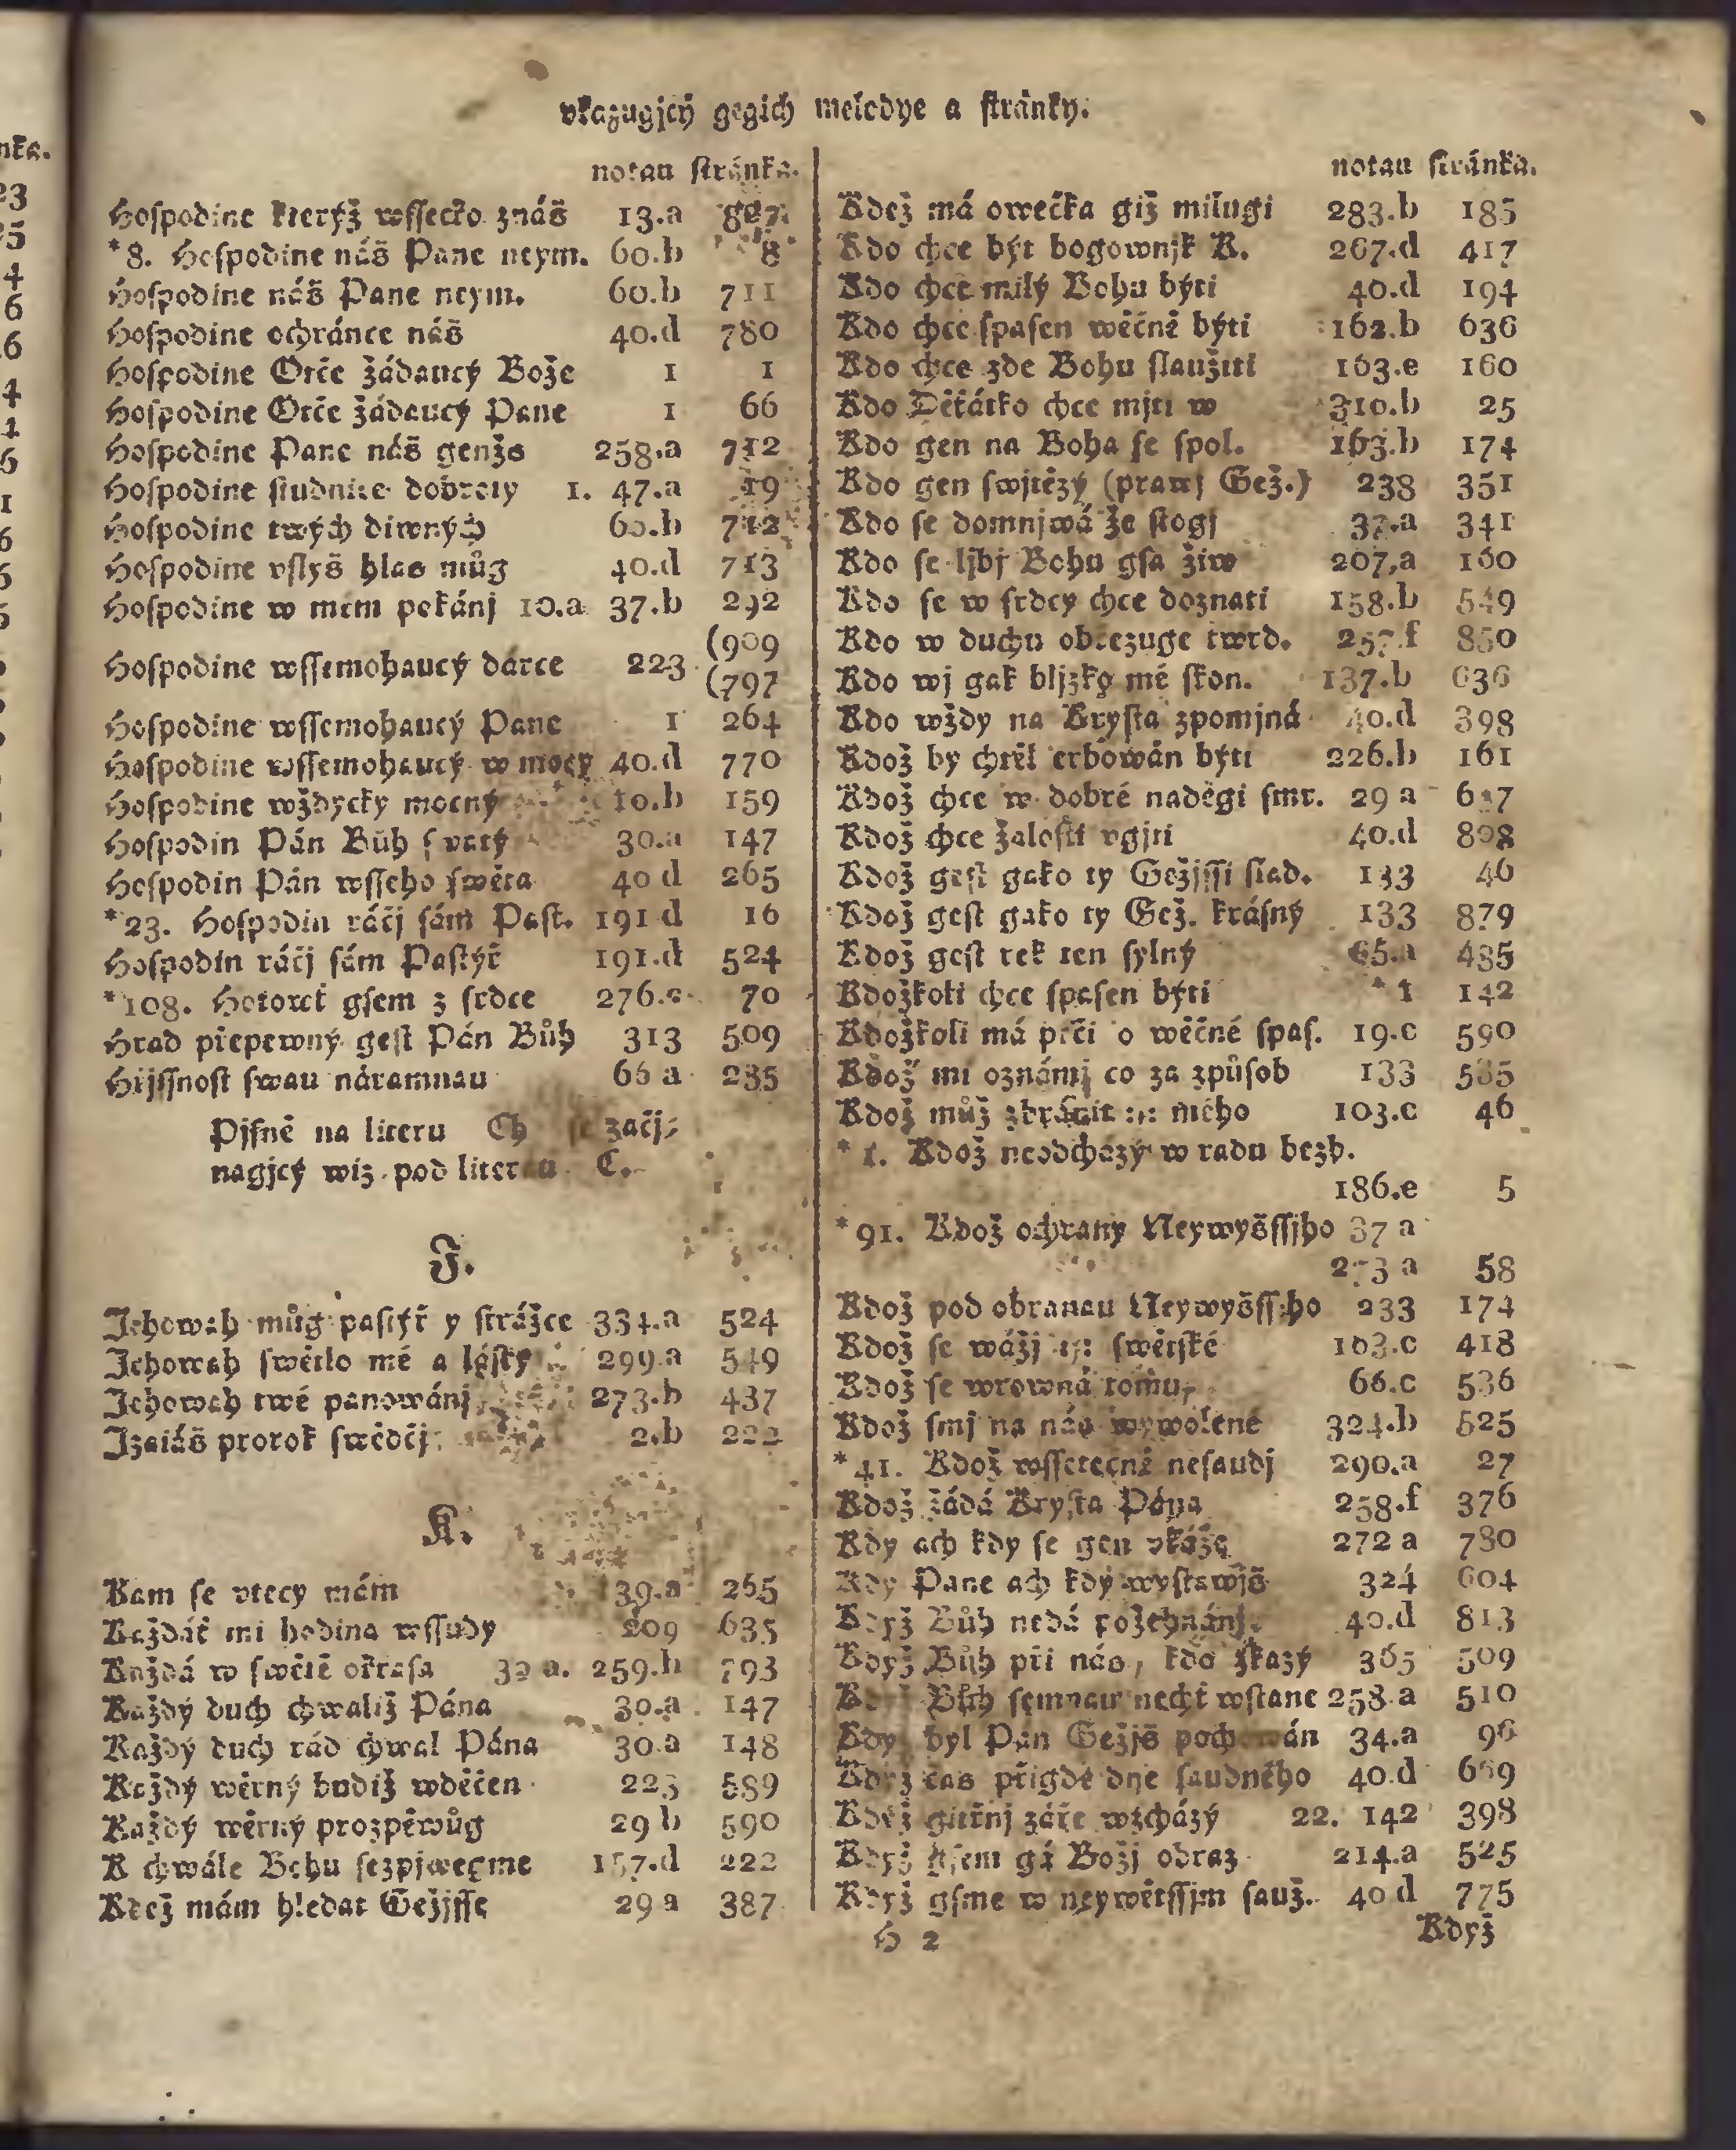 vkazugjcý gegich melodye a stránky.
notau stránka.
Hospodine kterýž wssecko znáš 13.a
*8. Hospodine náš Pane neym. 60.b 8
Hospodine náš Pane neym. 60.b 711
Hospodine ochránce náš 40.d 780
Hospodine Otče žádaucý Bože 1 1
Hospodine Otče žádaucý Pane 1 66
Hospodine Pane náš genžs 258.a 712
Hospodine studnice dobroty 1. 47.a 19
Hospodine twých diwných 60.b 712
Hospodine vslyš hlas můg 40.d 713
Hospodine w mém pokánj 10.a 37.b 292
(909
Hospodine wssemohaucý dárce 223
(797
Hospodine wssemohaucý Pane 1 264
Hospodine wssemohaucý w mocy 40.d 770
Hospodine wždycky mocný 10.b 159
Hospodin Pán Bůh swatý 30.a 147
Hospodin Pán wsseho swěta 40 d 265
*23. Hospodin ráčj sám Past. 191 d 16
Hospodin ráčj sám Pastýř 191.d 524
*108. Hotowť gsem z srdce 276.c 70
Hrad přepewný gest Pán Bůh 313 509
Hřjssnost swau náramnau 66 a 235
Pjsně na literu Ch se začj-
nagjcý wiz pod literau C.
J.
Jehowah můg pastýř y strážce 334.a 524
Jehowah swětlo mé a 299.a 549
Jehowah twé panowánj 273.b 437
Izaiáš prorok swědčj 2.b 222
K.
Kam se vtecy mám 39.a 265
Každáť mi hodina wssudy 209 635
Každá w swětě okrasa 39 a. 259.b 793
Každý duch chwaliž Pána 30.a 147
Každý duch rád chwal Pána 30.a 148
Každý wěrný budiž wděčen 223 589
Každý wěrný prozpěwůg 29 b 590
K chwále Bohu sezpjweyme 157.d 222
Kdež mám hledat Gežjsse 29 a 387
notau stránka.
Kdež má owečka giž milugi 283.b 185
Kdo chce být bogownjk K. 267.d 417
Kdo chce milý Bohu býti 40.d 194
Kdo chce spasen wěčně býti 162.b 636
Kdo chce zde Bohu slaužiti 163.e 160
Kdo Děťátko chce mjti w 310.b 25
Kdo gen na Boha se spol. 163.b 174
Kdo gen swjtězý (prawj Gež.) 238 351
Kdo se domnjwá že stogj 37.a 341
Kdo se ljbj Bohu gsa žiw 207,a 160
Kdo se w srdcy chce doznati 158.b 549
Kdo w duchu obřezuge twrd. 257.f 850
Kdo wj gak bljzko mé skon. 137.b 636
Kdo wždy na Krysta zpomjná 40.d 398
Kdož by chtěl erbowán býti 226.b 161
Kdož chce w dobré naděgi smr. 29 a 637
Kdož chce žalosti vgjti 40.d 808
Kdož gest gako ty Gežjssi slad. 133 46
Kdož gest gako ty Gež. krásný 133 879
Kdož gest rek ten sylný 65.a 435
Kdožkoli chce spasen býti 1 142
Kdožkoli má péči o wěčné spas. 19.c 590
Kdož mi oznámj co za způsob 133 535
Kdož můž zbránit :,: mého 103.c 46
* 1. Kdož neodcházý w radu bezb.
186.e 5
*91. Kdož ochrany Neywyšssjho 37 a
273 a 58
Kdož pod obranau Neywyšssjho 233 174
Kdož se wážj :,: swětské 103.c 418
Kdož se wrowná tomu, 66.c 536
Kdož smj na nás wywolené 324.b 525
*41. Kdož wssetečně nesaudj 290.a 27
Kdož žádá Krysta Pána 258.f 376
Kdy ach kdy se gen vkáže 272 a 780
Kdy Pane ach kdy wystawjš 324 604
Když Bůh nedá požehnánj 40.d 813
Když Bůh při nás, kdo zkazý 365 509
Když Bůh semnau nechť wstane 258.a 510
Kdy byl Pán Gežjš pochowán 34.a 96
Když čas přigde dne saudného 40.d 669
Když gitřnj záře wzcházý 22. 142 398
Když gsem gá Božj obraz 214.a 525
Když gsme w neywětssjm sauž. 40 d 775
H 2 Když